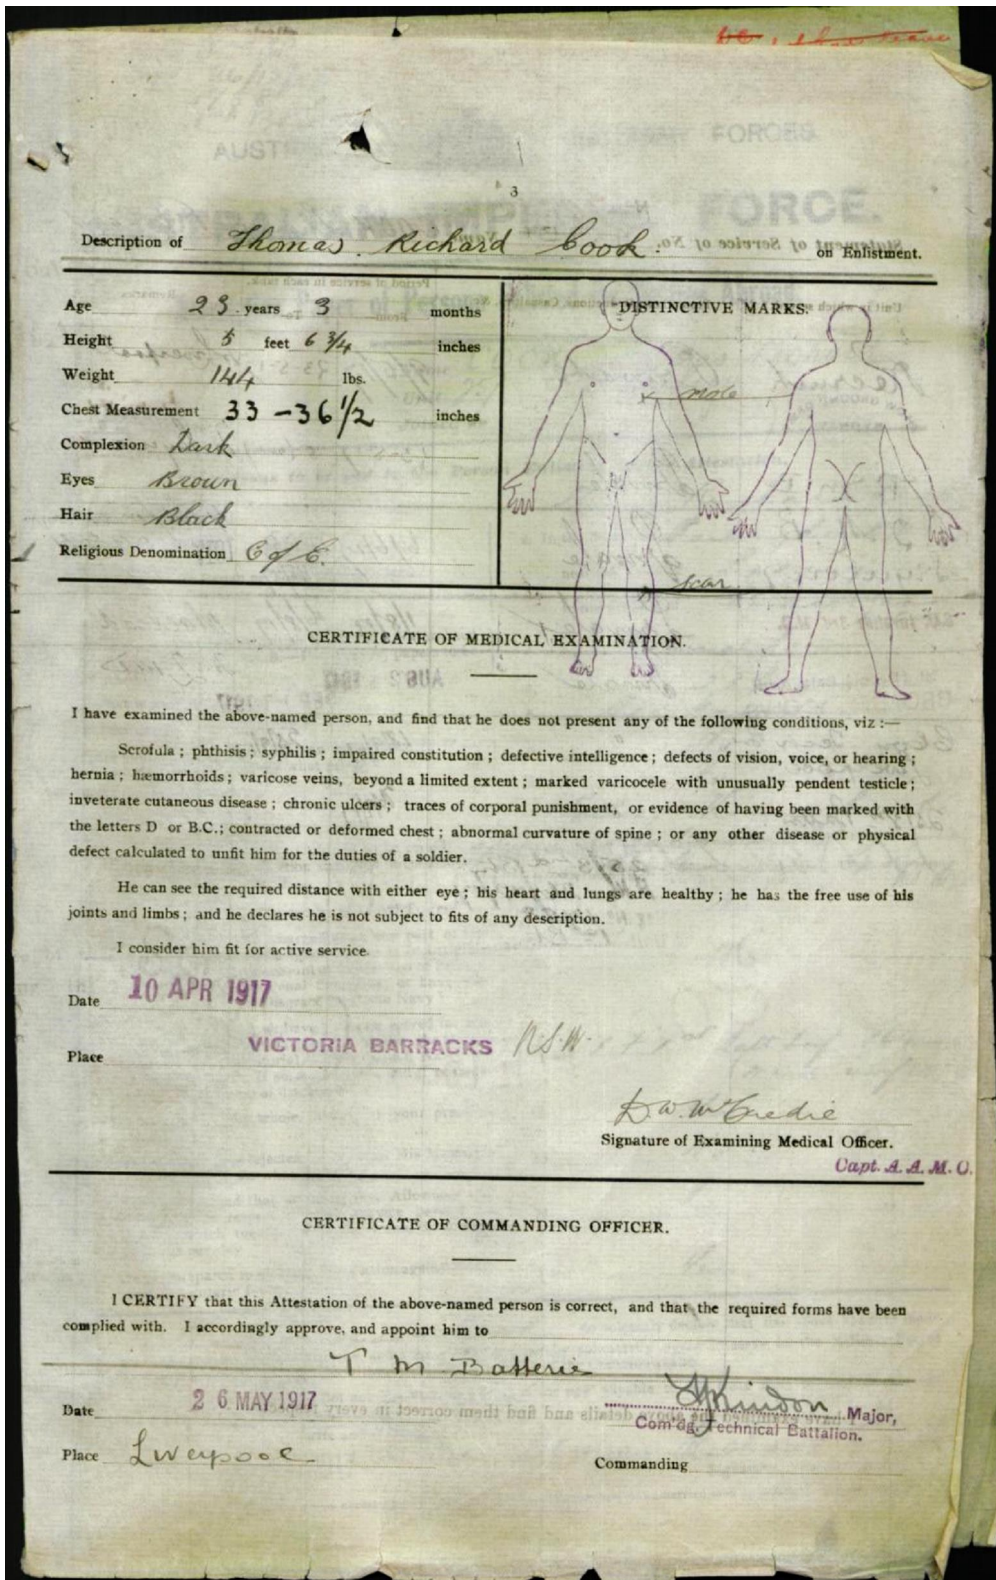 3
Description of Thomas Richard Cook. on Enlistment.
Age 23 years 3 months
Height 5 feet 6 3/4 inches
Weight 144 lbs.
Chest Measurement 33 - 36 1/2 inches
Complexion Dark
Eyes Brown
Hair Black
Religious Denomination C of C.
DISTINCTIVE MARKS.
mole
scar
CERTIFICATE OF MEDICAL EXAMINATION.
I have examined the above-named person, and find that he does not present any of the following conditions, viz :—
Scrofula ; phthisis ; syphilis ; impaired constitution ; defective intelligence ; defects of vision, voice, or hearing ;
hernia ; hæmorrhoids ; varicose veins, beyond a limited extent ; marked varicocele with unusually pendent testicle ;
inveterate cutaneous disease ; chronic ulcers ; traces of corporal punishment, or evidence of having been marked with
the letters D or B.C. ; contracted or deformed chest ; abnormal curvature of spine ; or any other disease or physical
defect calculated to unfit him for the duties of a soldier.
He can see the required distance with either eye ; his heart and lungs are healthy ; he has the free use of his
joints and limbs ; and he declares he is not subject to fits of any description.
I consider him fit for active service.
Date 10 APR 1917
Place VICTORIA BARRACKS N.S.W.
D. W. McCredie
Signature of Examining Medical Officer.
Capt. A. A. M. C.
CERTIFICATE OF COMMANDING OFFICER.
I CERTIFY that this Attestation of the above-named person is correct, and that the required forms have been
complied with. I accordingly approve, and appoint him to
T M Batterie
Date 26 MAY 1917
Kindon Major,
Com'dg. Technical Battalion.
Place Liverpool
Commanding